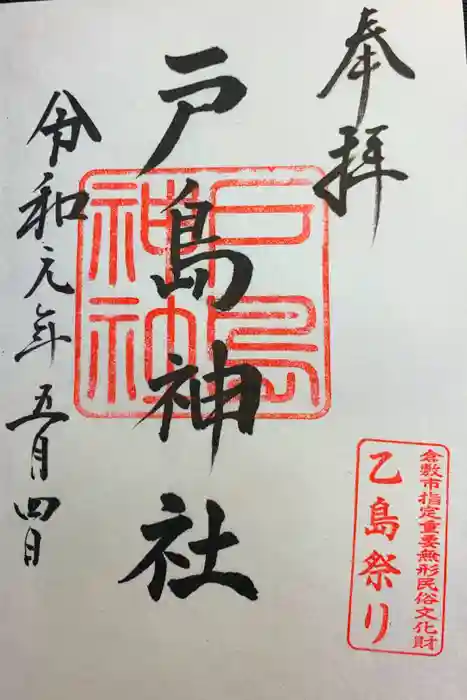 奉拝
戸島神社
戸島神社
令和元年五月四日
倉敷市指定重要無形民俗文化財
乙島祭り